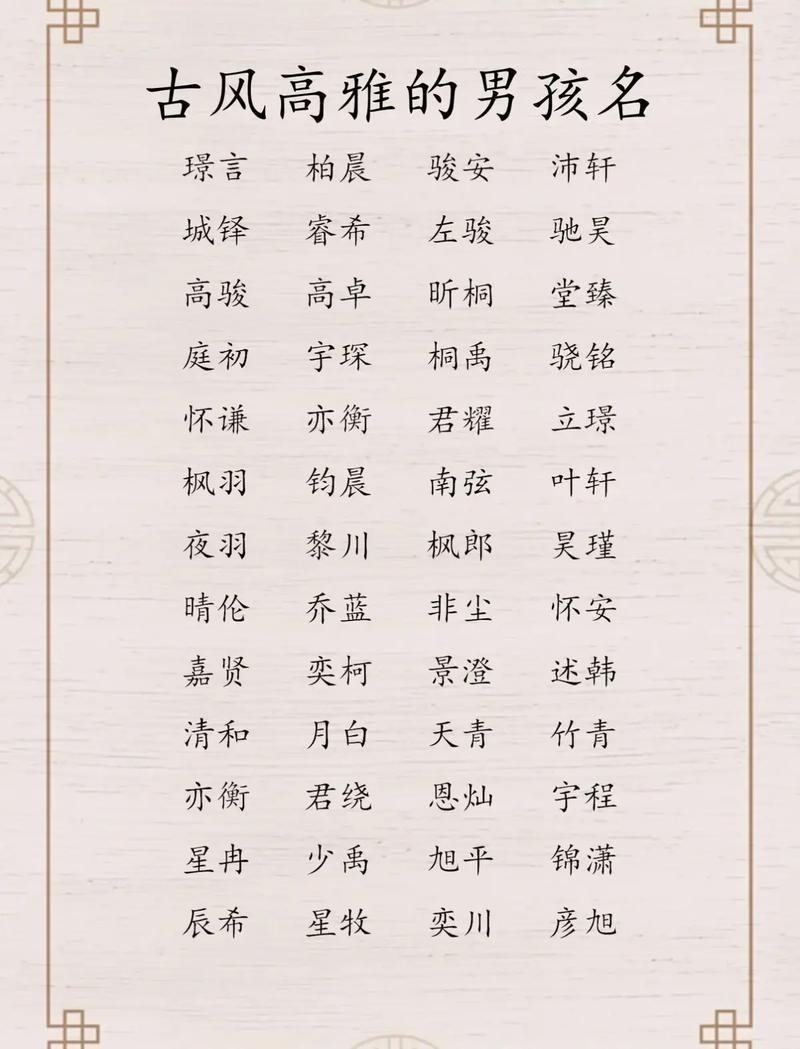 古风高雅的男孩名
璟言 柏晨 骏安 沛轩
城铎 睿希 左骏 驰昊
高骏 高卓 昕桐 堂臻
庭初 宇琛 桐禹 骁铭
怀谦 亦衡 君耀 立璟
枫羽 钧晨 南弦 叶轩
夜羽 黎川 枫郎 昊瑾
晴伦 乔蓝 非尘 怀安
嘉贤 奕柯 景澄 述韩
清和 月白 天青 竹青
亦衡 君绕 恩灿 宇程
星冉 少禹 旭平 锦潇
辰希 星牧 奕川 彦旭